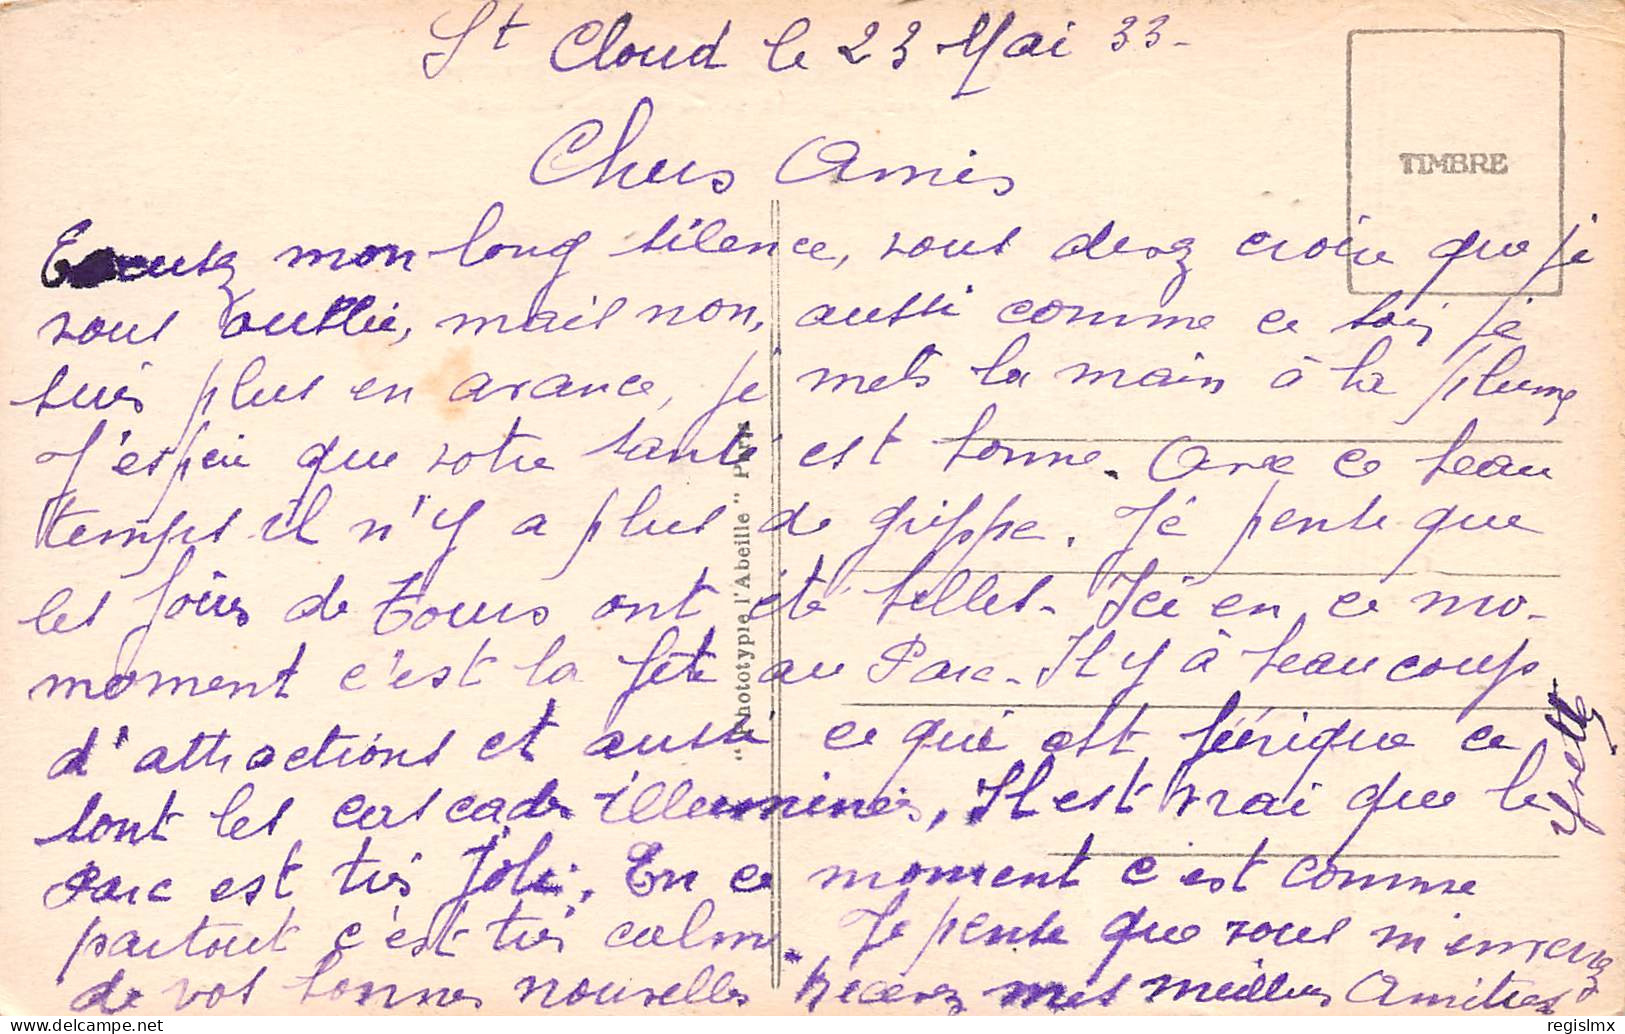 St Cloud le 23 Mai 33-
Chers Amis
TIMBRE
Excusez mon long silence, vous devez croire que je
vous oublie, mais non, aussi comme ce soir je
suis plus en avance, je mets la main à la plume
J'espère que votre santé est bonne. Avec ce beau
temps il n'y a plus de grippe. Je pense que
les foires de Tours ont été belles. Ici en ce mo-
moment c'est la fête au Parc. Il y à beaucoup
d'attractions et aussi ce qui est féérique ce
sont les cascades illuminées, Il est vrai que le
Parc est très joli. En ce moment c'est comme
partout c'est très calme. Je pense que vous m'enverrez
de vos bonnes nouvelles Recevez mes meilleures Amitiés
Yvette
"Phototypie l'Abeille" Paris
delcampe.net
regislmx